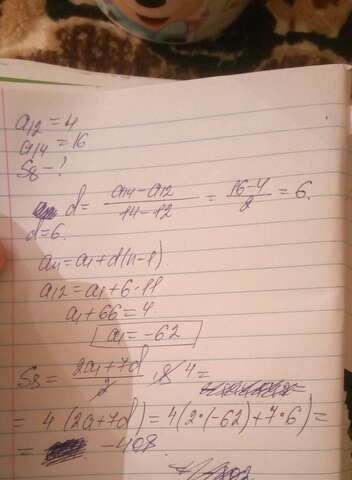 a12 = 4
a14 = 16
S8 - ?
d = (a14 - a12)/(14 - 12) = (16 - 4)/2 = 6.
d = 6.
an = a1 + d(n-1)
a12 = a1 + 6 · 11
a1 + 66 = 4
a1 = -62
S8 = (2a1 + 7d)/2 · 8 4 =
= 4 (2a + 7d) = 4(2·(-62) + 7·6) =
= -408